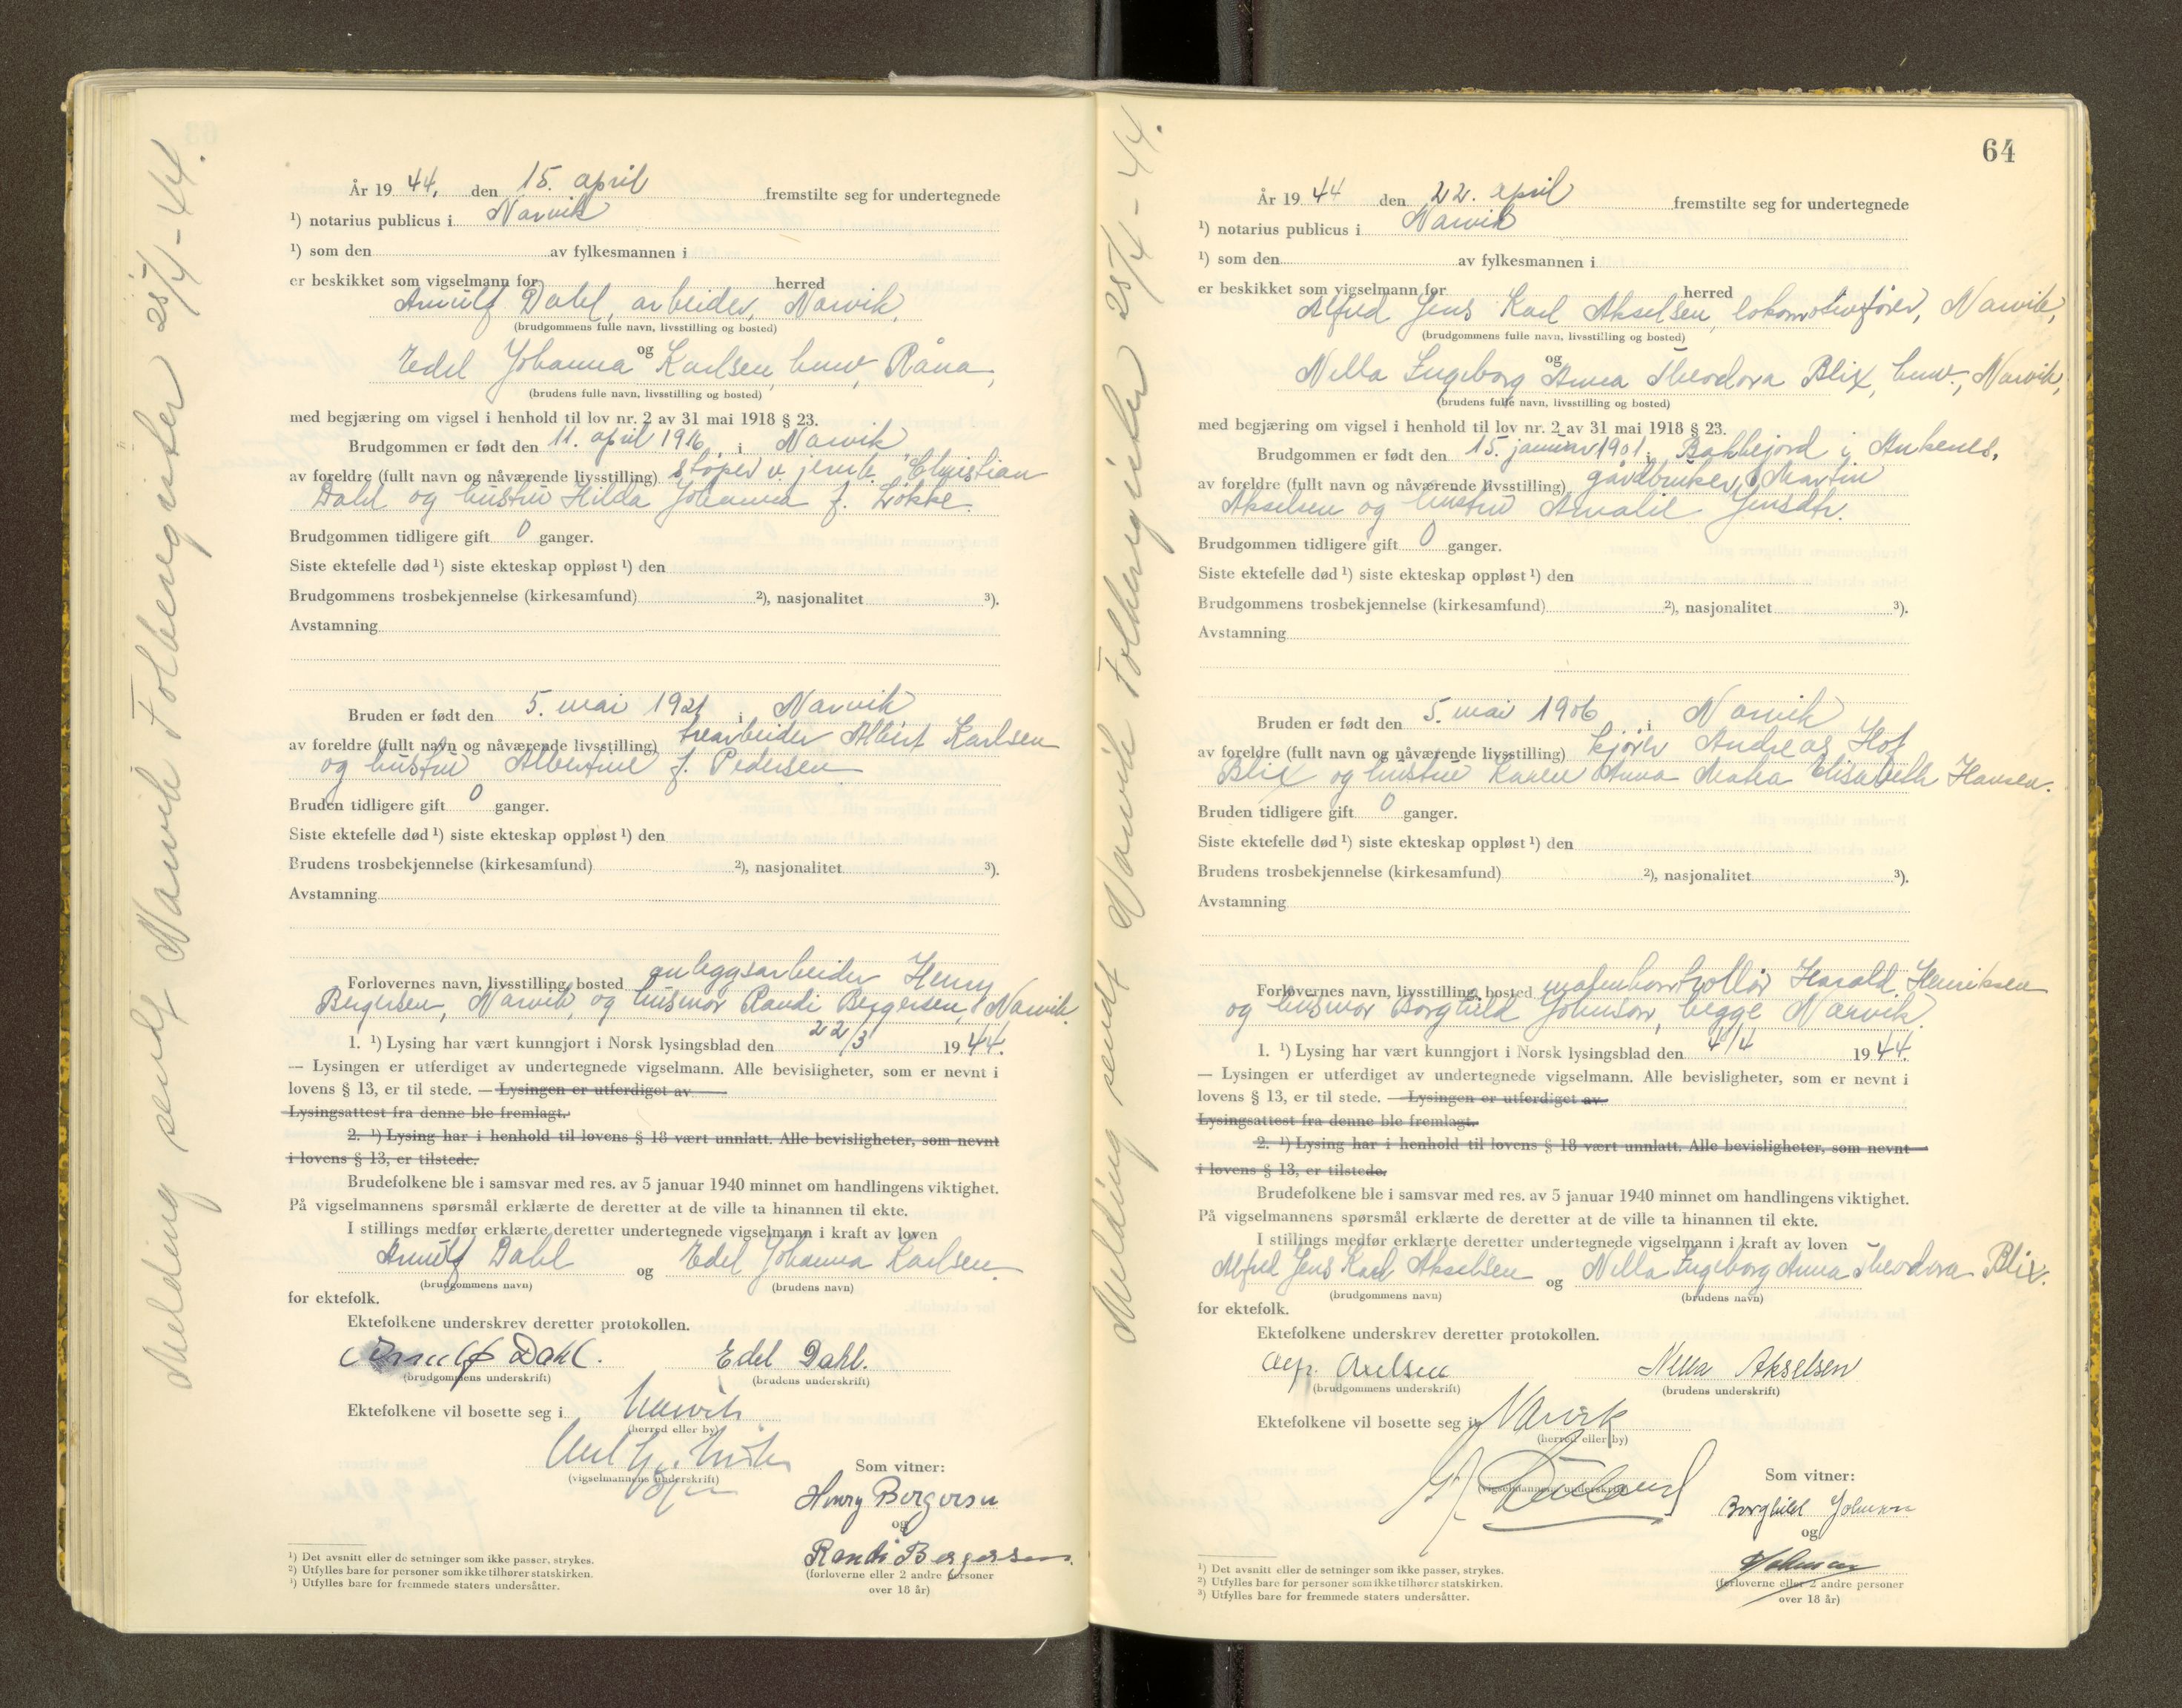 Melding sendt Narvik Folkeregister 25/4-44.
År 19 44, den 15. april fremstilte seg for undertegnede
¹) notarius publicus i Narvik
¹) som den av fylkesmannen i
er beskikket som vigselmann for herred
Arnulf Dahl, arbeider, Narvik,
(brudgommens fulle navn, livsstilling og bosted)
og
Edel Johanna Karlsen, husv, Råna,
(brudens fulle navn, livsstilling og bosted)
med begjæring om vigsel i henhold til lov nr. 2 av 31 mai 1918 § 23.
Brudgommen er født den 11. april 1916, i Narvik
av foreldre (fullt navn og nåværende livsstilling) støper v. jernb. Christian
Dahl og hustru Hilda Johanna f. Løkke.
Brudgommen tidligere gift 0 ganger.
Siste ektefelle død ¹) siste ekteskap oppløst ¹) den
Brudgommens trosbekjennelse (kirkesamfund) ²), nasjonalitet ³).
Avstamning
Bruden er født den 5. mai 1921 i Narvik
av foreldre (fullt navn og nåværende livsstilling) trearbeider Albert Karlsen
og hustru Albertine f. Pedersen
Bruden tidligere gift 0 ganger.
Siste ektefelle død ¹) siste ekteskap oppløst ¹) den
Brudens trosbekjennelse (kirkesamfund) ²), nasjonalitet ³).
Avstamning
Forlovernes navn, livsstilling, bosted anleggsarbeider Henry
Bergersen, Narvik, og husmor Randi Bergersen, Narvik.
1. ¹) Lysing har vært kunngjort i Norsk lysingsblad den 22/3 19 44.
— Lysingen er utferdiget av undertegnede vigselmann. Alle bevisligheter, som er nevnt i
lovens § 13, er til stede. — Lysingen er utferdiget av
Lysingsattest fra denne ble fremlagt.
2. ¹) Lysing har i henhold til lovens § 18 vært unnlatt. Alle bevisligheter, som nevnt
i lovens § 13, er tilstede.
Brudefolkene ble i samsvar med res. av 5 januar 1940 minnet om handlingens viktighet.
På vigselmannens spørsmål erklærte de deretter at de ville ta hinannen til ekte.
I stillings medfør erklærte deretter undertegnede vigselmann i kraft av loven
Arnulf Dahl og Edel Johanna Karlsen
(brudgommens navn) (brudens navn)
for ektefolk.
Ektefolkene underskrev deretter protokollen.
Arnulf Dahl. Edel Dahl.
(brudgommens underskrift) (brudens underskrift)
Ektefolkene vil bosette seg i Narvik
(herred eller by)
(vigselmannens underskrift)
Som vitner:
Henry Bergersen
og
Randi Bergersen.
(forloverne eller 2 andre personer
over 18 år)
¹) Det avsnitt eller de setninger som ikke passer, strykes.
²) Utfylles bare for personer som ikke tilhører statskirken.
³) Utfylles bare for fremmede staters undersåtter.
64
Melding sendt Narvik Folkeregister 25/4-44.
År 19 44 den 22. april fremstilte seg for undertegnede
¹) notarius publicus i Narvik
¹) som den av fylkesmannen i
er beskikket som vigselmann for herred
Alfred Jens Karl Akselsen, lokomotivfører, Narvik,
(brudgommens fulle navn, livsstilling og bosted)
og
Nella Ingeborg Anna Theodora Blix, husv., Narvik,
(brudens fulle navn, livsstilling og bosted)
med begjæring om vigsel i henhold til lov nr. 2 av 31 mai 1918 § 23.
Brudgommen er født den 15. januar 1901 i Bakkejord i Ankenes.
av foreldre (fullt navn og nåværende livsstilling) gårdbruker Martin
Akselsen og hustru Amalie Jensdtr.
Brudgommen tidligere gift 0 ganger.
Siste ektefelle død ¹) siste ekteskap oppløst ¹) den
Brudgommens trosbekjennelse (kirkesamfund) ²), nasjonalitet ³).
Avstamning
Bruden er født den 5. mai 1906 i Narvik
av foreldre (fullt navn og nåværende livsstilling) kjører Andreas Hof
Blix og hustru Karen Anna Elisabeth Hansen.
Bruden tidligere gift 0 ganger.
Siste ektefelle død ¹) siste ekteskap oppløst ¹) den
Brudens trosbekjennelse (kirkesamfund) ²), nasjonalitet ³).
Avstamning
Forlovernes navn, livsstilling, bosted malmkontrollør Harald Henriksen
og husmor Borghild Johnson, begge Narvik.
1. ¹) Lysing har vært kunngjort i Norsk lysingsblad den 4/4 19 44.
— Lysingen er utferdiget av undertegnede vigselmann. Alle bevisligheter, som er nevnt i
lovens § 13, er til stede. — Lysingen er utferdiget av
Lysingsattest fra denne ble fremlagt.
2. ¹) Lysing har i henhold til lovens § 18 vært unnlatt. Alle bevisligheter, som nevnt
i lovens § 13, er tilstede.
Brudefolkene ble i samsvar med res. av 5 januar 1940 minnet om handlingens viktighet.
På vigselmannens spørsmål erklærte de deretter at de ville ta hinannen til ekte.
I stillings medfør erklærte deretter undertegnede vigselmann i kraft av loven
Alfred Jens Karl Akselsen og Nella Ingeborg Anna Theodora Blix.
(brudgommens navn) (brudens navn)
for ektefolk.
Ektefolkene underskrev deretter protokollen.
Alfr. Axelsen Nella Akselsen
(brudgommens underskrift) (brudens underskrift)
Ektefolkene vil bosette seg i Narvik
(herred eller by)
(vigselmannens underskrift)
Som vitner:
Borghild Johnson
og
(forloverne eller 2 andre personer
over 18 år)
¹) Det avsnitt eller de setninger som ikke passer, strykes.
²) Utfylles bare for personer som ikke tilhører statskirken.
³) Utfylles bare for fremmede staters undersåtter.